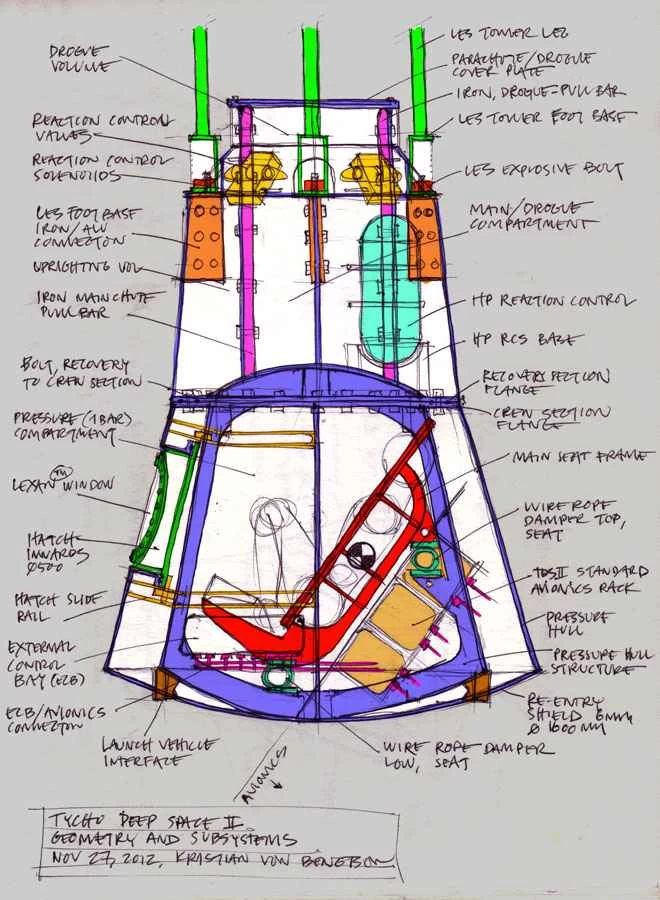 DROGUE
VOLUME
REACTION CONTROL
VALVES
REACTION CONTROL
SOLENOIDS
LES FOOT BASE
IRON/ALU
CONNECTON
UPRIGHTING VOL
IRON MAIN CHUTE
PULL BAR
BOLT, RECOVERY
TO CREW SECTION
PRESSURE (1 BAR)
COMPARTMENT
LEXAN TM WINDOW
HATCH
INWARDS
Ø500
HATCH SLIDE
RAIL
EXTERNAL
CONTROL
BAY (ECB)
ECB/AVIONICS
CONNECTON
LAUNCH VEHICLE
INTERFACE
AVIONICS
LES TOWER LEG
PARACHUTE/DROGUE
COVER PLATE
IRON, DROGUE-PULL BAR
LES TOWER FOOT BASE
LES EXPLOSIVE BOLT
MAIN/DROGUE
COMPARTMENT
HP REACTION CONTROL
HP RCS BASE
RECOVERY SECTION
FLANGE
CREW SECTION
FLANGE
MAIN SEAT FRAME
WIRE ROPE
DAMPER TOP,
SEAT
TDSII STANDARD
AVIONICS RACK
PRESSURE
HULL
PRESSURE HULL
STRUCTURE
RE-ENTRY
SHIELD 6MM
Ø 1600 MM
WIRE ROPE DAMPER
LOW, SEAT
TYCHO DEEP SPACE II
GEOMETRY AND SUBSYSTEMS
NOV 27, 2012, KRISTIAN VON BENGTSON